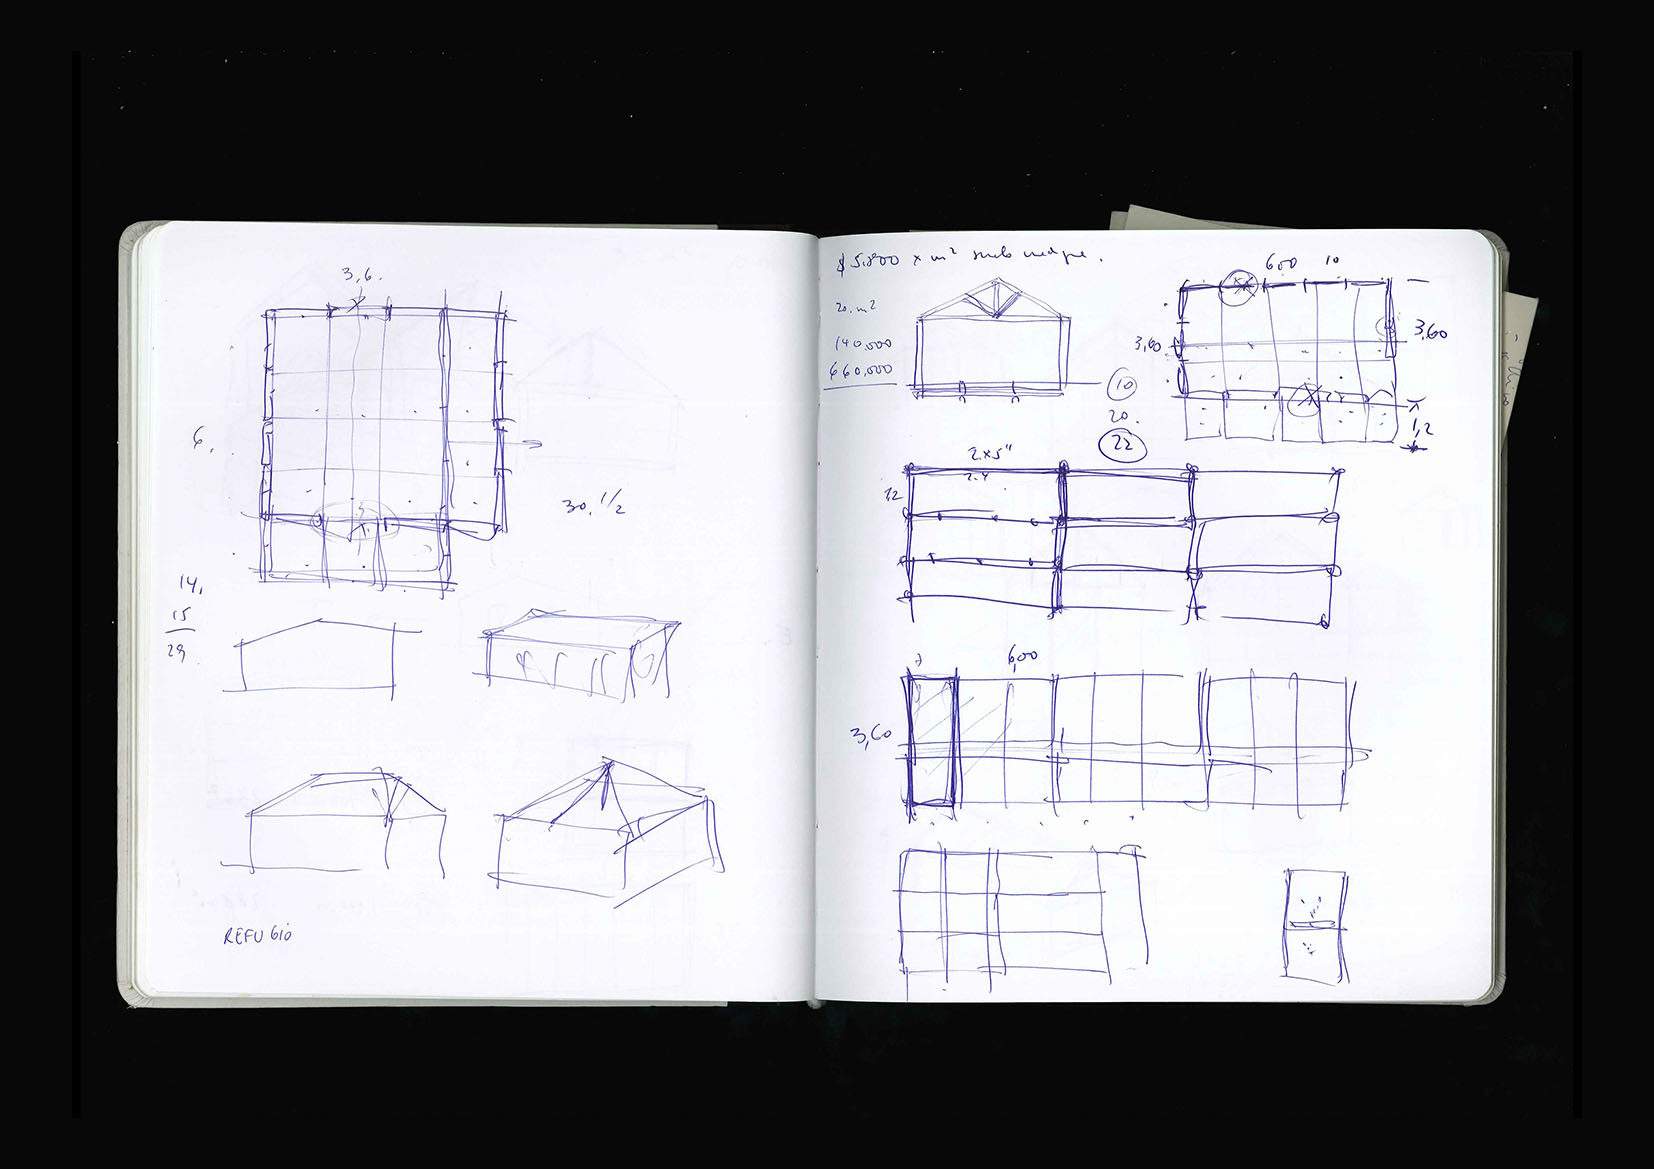 3,6.
6.
30, 1/2
14,
15
29
REFUGIO
$ 5.800 x m²
20. m²
140,000
660,000
10
20.
22
600 10
3,60
3,60
1,2
2x5"
2.4
1,2
6,00
3,60